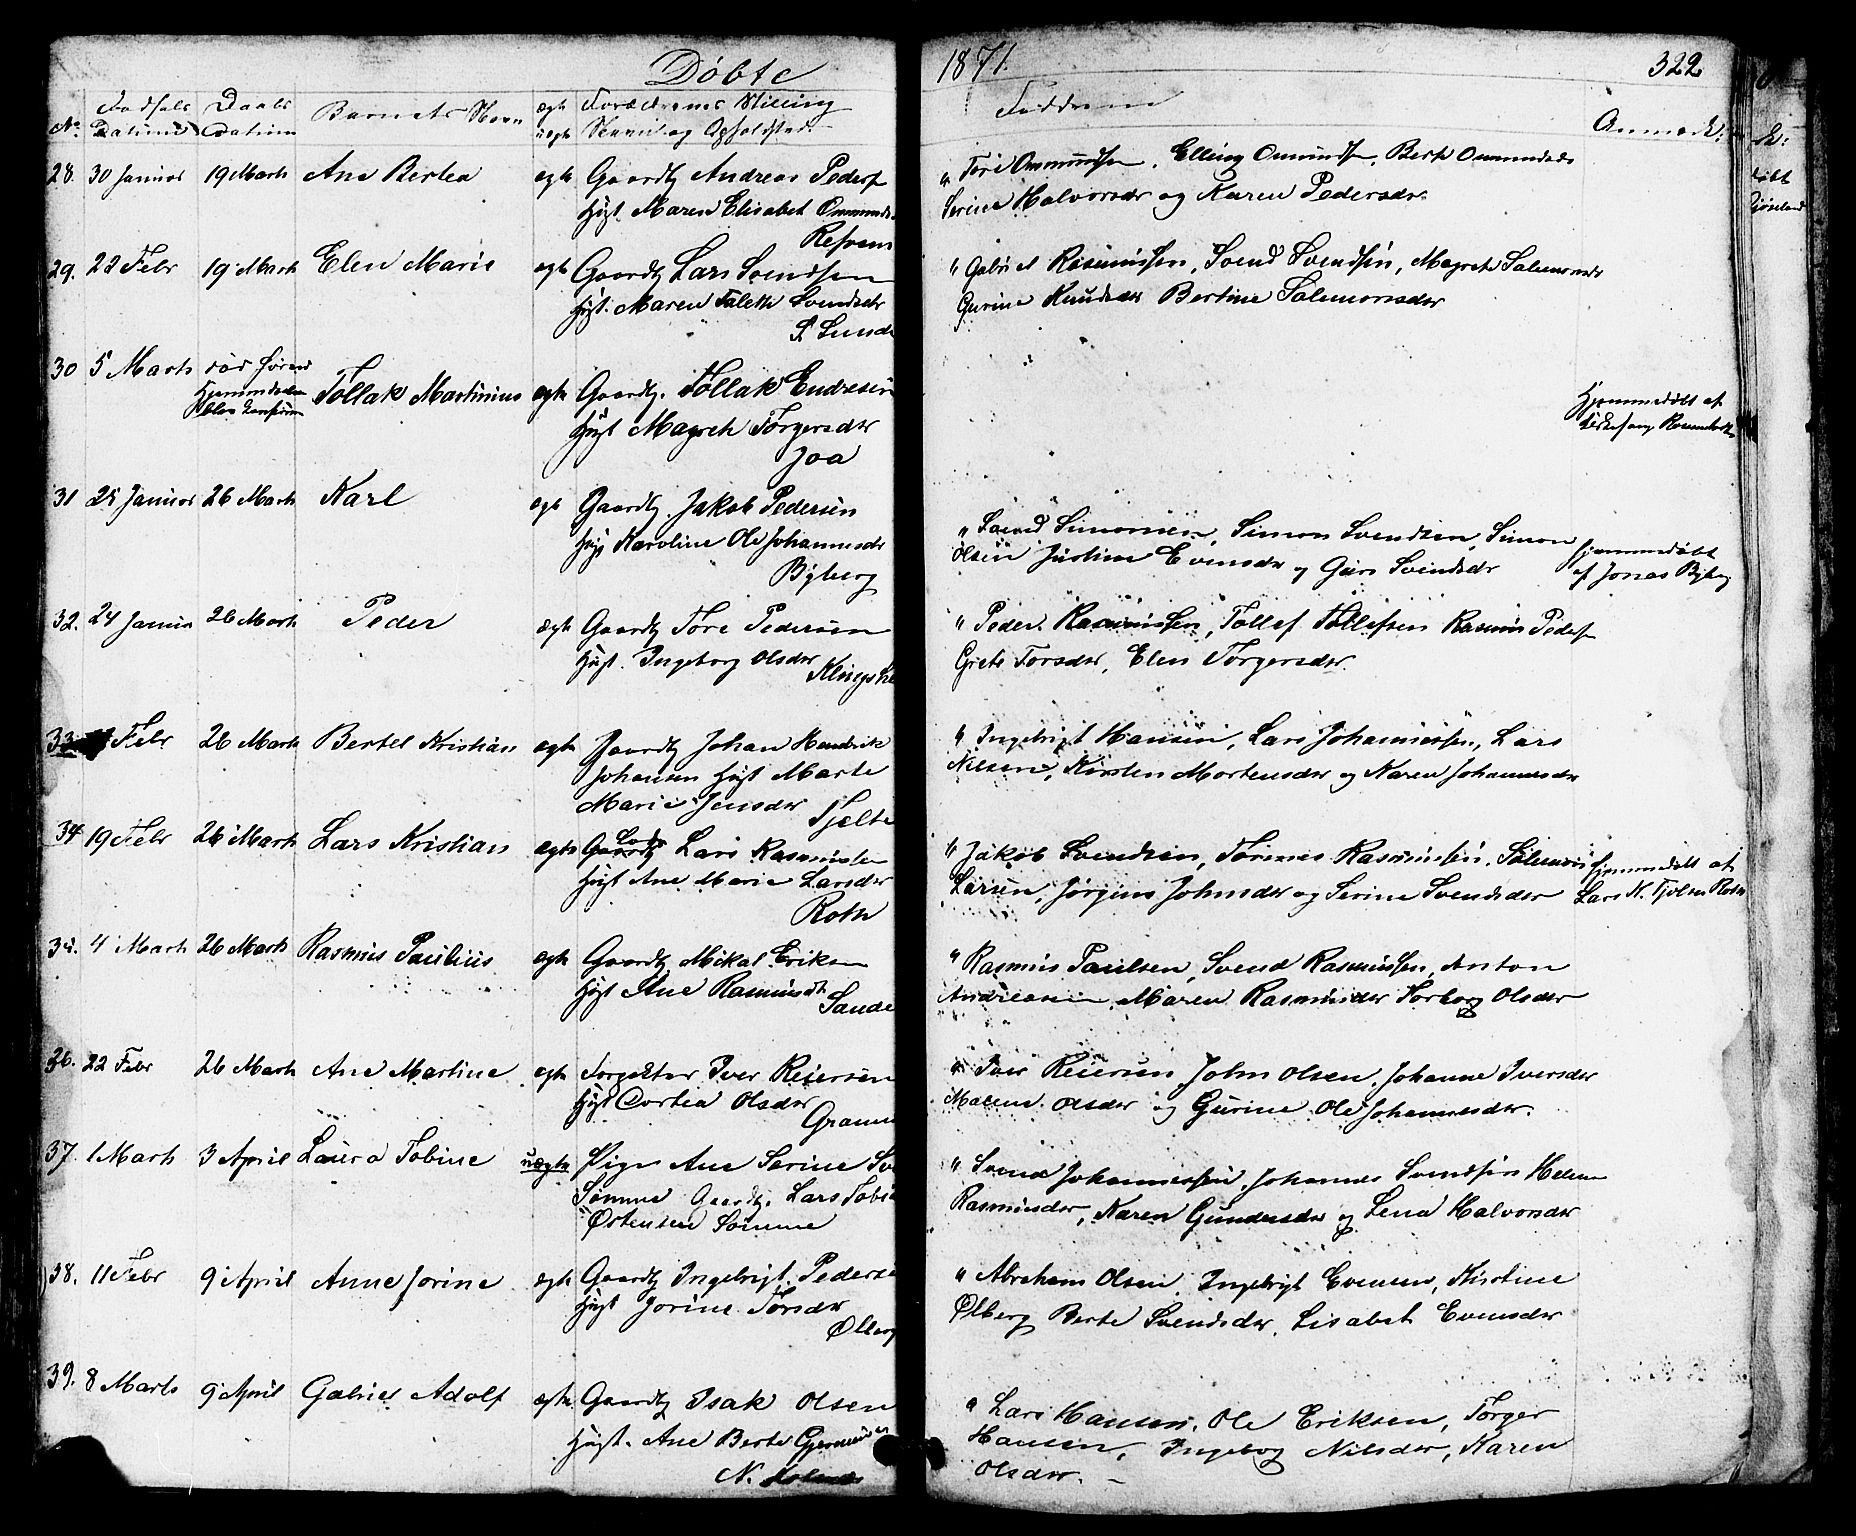 Døbte
1871.
322
No Fødsels Datum Daabs Datum Barnets Navn ægte uægte Forældrenes Stilling Navn og Opholdsted.
Faddrene
Anmærk:
28. 30 Januar 19 Marts Ane Bertea ægte Gaardbr Andreas Peders
Hust. Maren Elisabet Ommunds
Refsnes
" Tore Ommundsen, Elling Ommundsen, Berte Ommundsdr
Serine Halvorsdr og Karen Pedersdr.
29. 23 Febr 19 Marts Elen Marie ægte Gaardbr Lars Svendsen
Hust. Maren Svendsdr
" Gabriel Rasmussen, Svend Svendsen, Magrete Salemonsdr
Gurine Knudsdr Bertine Salemonsdr
30 5 Marts Tollak Martinius ægte Gaardbr. Tollak Endresen
Hust Magrete Torgersdr
Joa
Hjemmedøbt af
31 25 Januar 26 Marts Karl ægte Gaardbr. Jakob Pedersen
Hust Karoline Ole Johannesdr
Byberg
" Svend Simonsen, Simon Svendsen, Simon
Olsen Justine Evensdr og Guri Svendsdr
Hjemmedøbt
af Jonas Byberg
32. 24 Januar 26 Marts Peder ægte Gaardbr Tore Pedersen
Hust. Ingeborg Olsdr
" Peder Rasmussen, Tollef Tollefsen Rasmus Peders
Grete Torsdr, Elen Torgersdr.
33. Febr 26 Marts Bertel Kristian ægte Gaardbr Johan Hendrik
Johansen Hust Marte
Marie Jensdr
Tjelte
" Ingebrigt Hansen, Lars Johannessen, Lars
Nilsen, Kirsten Mortensdr og Karen Johannesdr
34 19 Febr 26 Marts Lars Kristian ægte Gaardbr Lars Rasmussen
Hust Ane Marie Larsdr
Roth
" Jakob Svendsen, Tønnes Rasmussen, Salemon
Larsen, Jørgine Johnsdr og Serine Svendsdr
Hjemmedøbt af
Lars N. Roth
35. 4 Marts 26 Marts Rasmus Paulius ægte Gaardbr Mikal Eriksen
Hust Ane Rasmusdr
Sande
" Rasmus Paulsen, Svend Rasmussen, Anton
Andreasen Maren Rasmusdr Torborg Olsdr
36. 22 Febr 26 Marts Ane Martine ægte Iver Reiersen
Hust Dortea Olsdr
" Iver Reiersen John Olsen, Johanne Iversdr
Malene Olsdr og Gurine Ole Johannesdr.
37. 1 Marts 3 April Laura Tobine uægte Pige Ane Serine
Sømme Gaardbr. Lars
Østensen Sømme
" Svend Johannessen, Johannes Svendsen Helene
Rasmusdr, Karen Gundersdr og Lena Halvorsdr
38. 11 Febr 9 April Anne Jorine ægte Gaardbr Ingebrigt Pederse
Hust Jorine Torsdr
Ølberg
" Abraham Olsen, Ingebrigt Evensen, Kistine
Ølberg Berte Svendsdr, Lisabet Evensdr
39. 8 Marts 9 April Gabriel Adolf ægte Gaardbr Isak Olsen
Hust. Ane Berte
N.
" Lars Hansen, Ole Eriksen, Torger
Hansen, Ingeborg Nilsdr, Karen
Olsdr. –